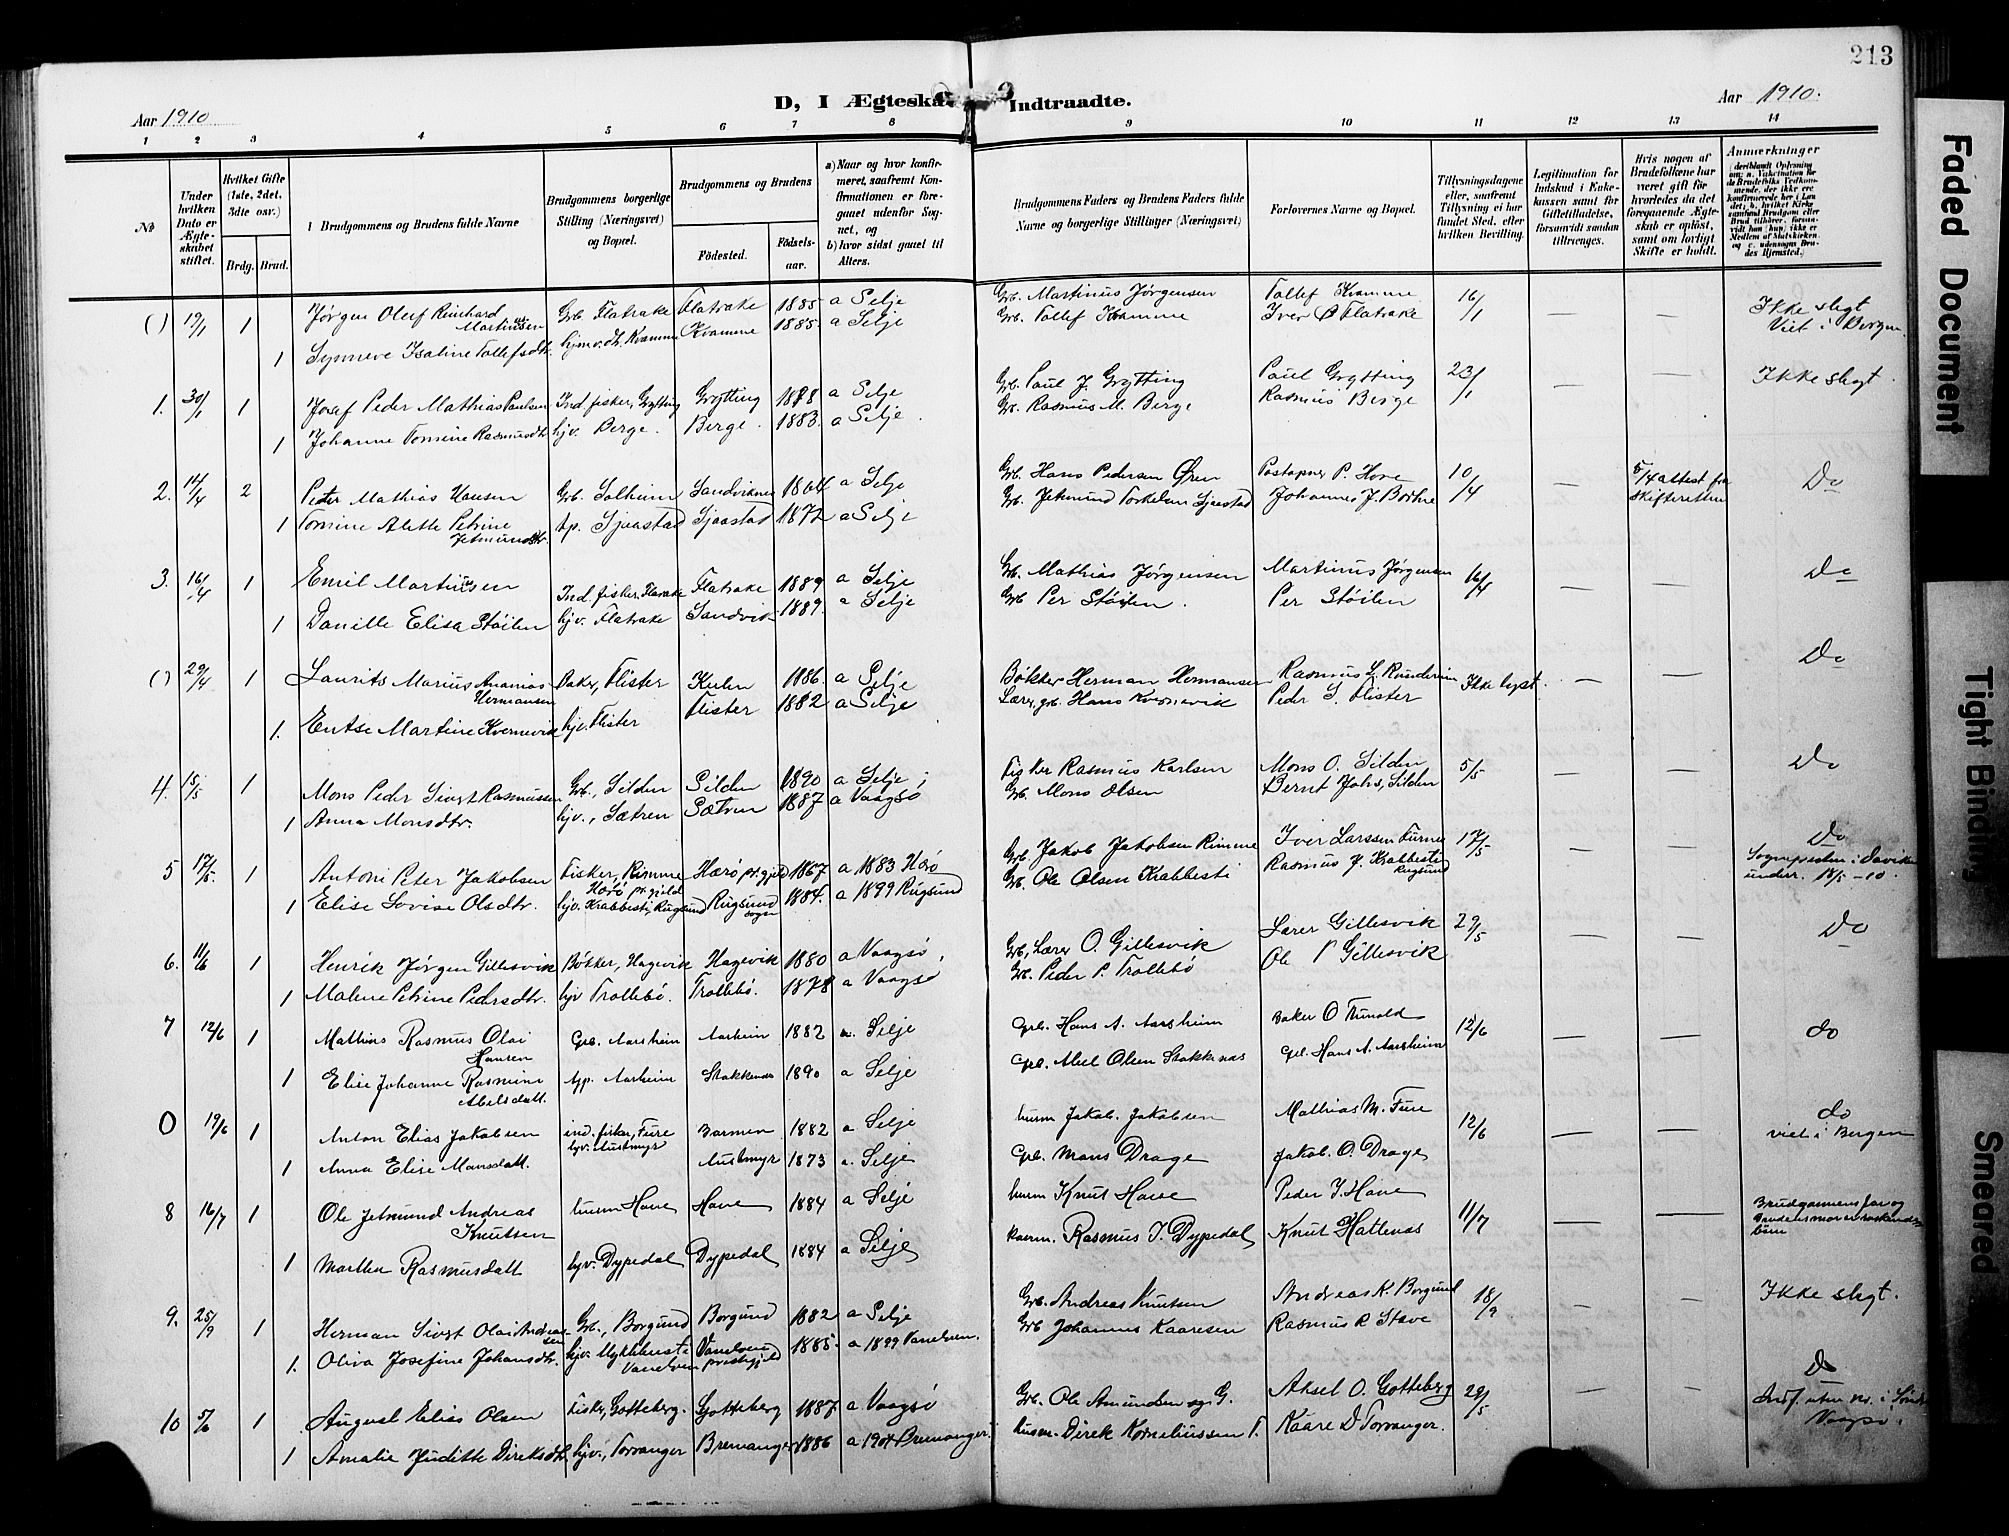 213
Aar 1910
D, I Ægteska
Indtraadte.
Aar 1910.
1 2 3 4 5 6 7 8 9 10 11 12 13 14
№
Under hvilken Dato er Ægteskabet stiftet.
Hvilket Gifte (1ste, 2det, 3dte osv.)
Brdg. Brud.
Brudgommens og Brudens fulde Navne
Brudgommens borgerlige Stilling (Næringsvei) og Bopæl.
Brudgommens og Brudens
Födested.
Födsels-aar.
a) Naar og hvor konfirmeret, saafremt Konfirmationen er foregaaet udenfor Sognet, og
b) hvor sidst gaaet til Alters.
Brudgommens Faders og Brudens Faders fulde Navne og borgerlige Stillinger (Næringsvei)
Forlovernes Navne og Bopæl.
Tillysningsdagene eller, saafremt Tillysning ei har fundet Sted, efter hvilken Bevilling.
Legitimation for Indskud i Enkekassen samt for Giftetilladelse, forsaavidt saadan tiltrænges.
Hvis nogen af Brudefolkene har været gift för hvorledes da det foregaaende Ægteskab er oplöst, samt om lovligt Skifte er holdt.
Anmærkninger
() 19/1 1 Jørgen Oluf Reinhard Martinussen Grb Flatrake Flatrake 1885 a Selje Grb. Martinus Jørgensen Tollef Kvamme 16/1 — — Ikke slegt
1 Synneve Isaline Tollefsdtr. hjemv. dtr. Kvamme Kvamme 1885. a Selje Grb. Tollef Kvamme Iver Ø Flatrake Viet i Bergen
1. 30/1 1 Josef Peder Mathias Paulsen Ind. fisker, Grytting Grytting 1888 a Selje Grb. Paul J. Grytting Paul Grytting 23/1 — — Ikke slegt.
1 Johanne Tomine Rasmusdtr. hjv. Berge. Berge. 1883. a Selje Grb. Rasmus M. Berge Rasmus Berge
2. 14/4 2 Peder Mathias Hansen Grb. Solheim Sandviknes 1864 a Selje Grb. Hans Pedersen Øren Postopner P. Hove 10/4 — 5/4 attest fra skifteretten Do
1 Tomine Alette Petrine Jetmundsdtr. tp. Sjaastad Sjaastad 1872 a Selje Grb. Jetmund Torkelsen Sjaastad Johannes J. Borthne
3. 16/4 1 Emil Martinussen Ind. fisker, Flatrake Flatrake 1889 a Selje Grb. Mathias Jørgensen Martinus Jørgensen 16/4 — — Do
1 Danille Elisa Støilen hjv. Flatrake Sandvik 1889. a Selje Grb Per Støilen. Per Støilen
() 29/4 1 Laurits Marius Ananias Hermansen Baker, Flister Kulen 1886. a Selje Bøkker Herman Hermansen Rasmus L. Runderim Ikke lyst. — — Do
1. Entse Martine Kvernevik hjv. Flister Flister 1882 a Selje Lærer, grb. Hans Kvernevik Peder S. Flister
4. 15/5 1 Mons Peder Sivert Rasmussen Grb., Silden Silden 1890 a Selje; Fisker Rasmus Karlsen Mons O. Silden 5/5 — — Do
1 Anna Monsdtr. hjv., Sætren Sætren 1887 a Vaagsø Grb. Mons Olsen Bernt Johs. Silden
5 17/5. 1 Antoni Peter Jakobsen Fisker, Rimme Herø pr.gjeld Herø pr.gjeld 1867 a 1883 Herø Grb. Jakob Jakobsen Rimme Iver Larssen Furnes 17/5 — — Do
1 Elise Lovise Olsdtr. hjv. Krabbesti, Rugsund Rugsund sogn 1884. a 1899 Rugsund Grb. Ole Olsen Krabbesti Rasmus J. Krabbesti Rugsund Sognepresten i Davik underr. 18/5-10.
6. 11/6 1 Henrik Jørgen Gillesvik Bøkker, Hagevik Hagevik 1880 a Vaagsø. Grb, Lærer O. Gillesvik Lærer Gillesvik 29/5 — — Do
1 Malene Petrine Pedersdtr. hjv Trollebø. Trollebø. 1878 a Vaagsø Grb. Peder P. Trollebø Ole P Gillesvik
7 12/6 1 Mathias Rasmus Olai Hansen Grb. Aarsheim Aarheim 1882 a. Selje Grb. Hans A. Aarsheim Baker O Frunold 12/6 — — do
1 Elise Johanne Rasmine Abelsdatt. tjp. Aarheim Stokkenes 1890 a Selje Grb. Abel Olsen Stokkenes Grb. Hans A. Aarsheim
0 19/6 1 Anton Elias Jakobsen ind. fisker, Fure Barmen 1882 a Selje husm Jakob Jakobsen Mathias M. Fure 12/6 — — do
1 Anna Elise Monsdatt. hjv. Austmyr Austmyr 1873 a. Selje Grb. Mons Drage Jakob. O. Drage viet i Bergen
8 16/7 1 Ole Jetmund Andreas Knutsen husm Hove Hove 1884 a Selje husm Knut Hove Peder J. Hove 11/7 — — Brudgommens far og Brudens mor er søskendebørn
1 Marthea Rasmusdatt hjv. Dypedal Dypedal 1884 a Selje Rasmus J. Dypedal Knut Hatlenes
9. 25/9 1 Herman Sivert Olai Andreassen Grb., Borgund Borgund 1882 a Selje Grb. Andreas Knutsen Andreas K. Borgund 18/9 — — Ikke slegt.
1. Oliva Josefine Johansdtr. hjv. Myklebust i Vanelven Vanelven prestegjeld 1885. a 1899 Vanelven. Grb Johannes Kaaresen Rasmus R Stave
10 5/6 1 August Elias Olsen Fisker, Gotteberg. Gotteberg 1887 a Vaagsø Grb. Ole Amundsen og G. Aksel O. Gotteberg 29/5 — — Do
1 Amalie Juditte Direksdtr. hjv., Torvanger Bremanger 1886 a 1901 Bremanger. husm. Direk Korneliussen T. Kaare D Torvanger. Indf. uten no. i Vaagsø.
Faded Document
Tight Binding
Smeared